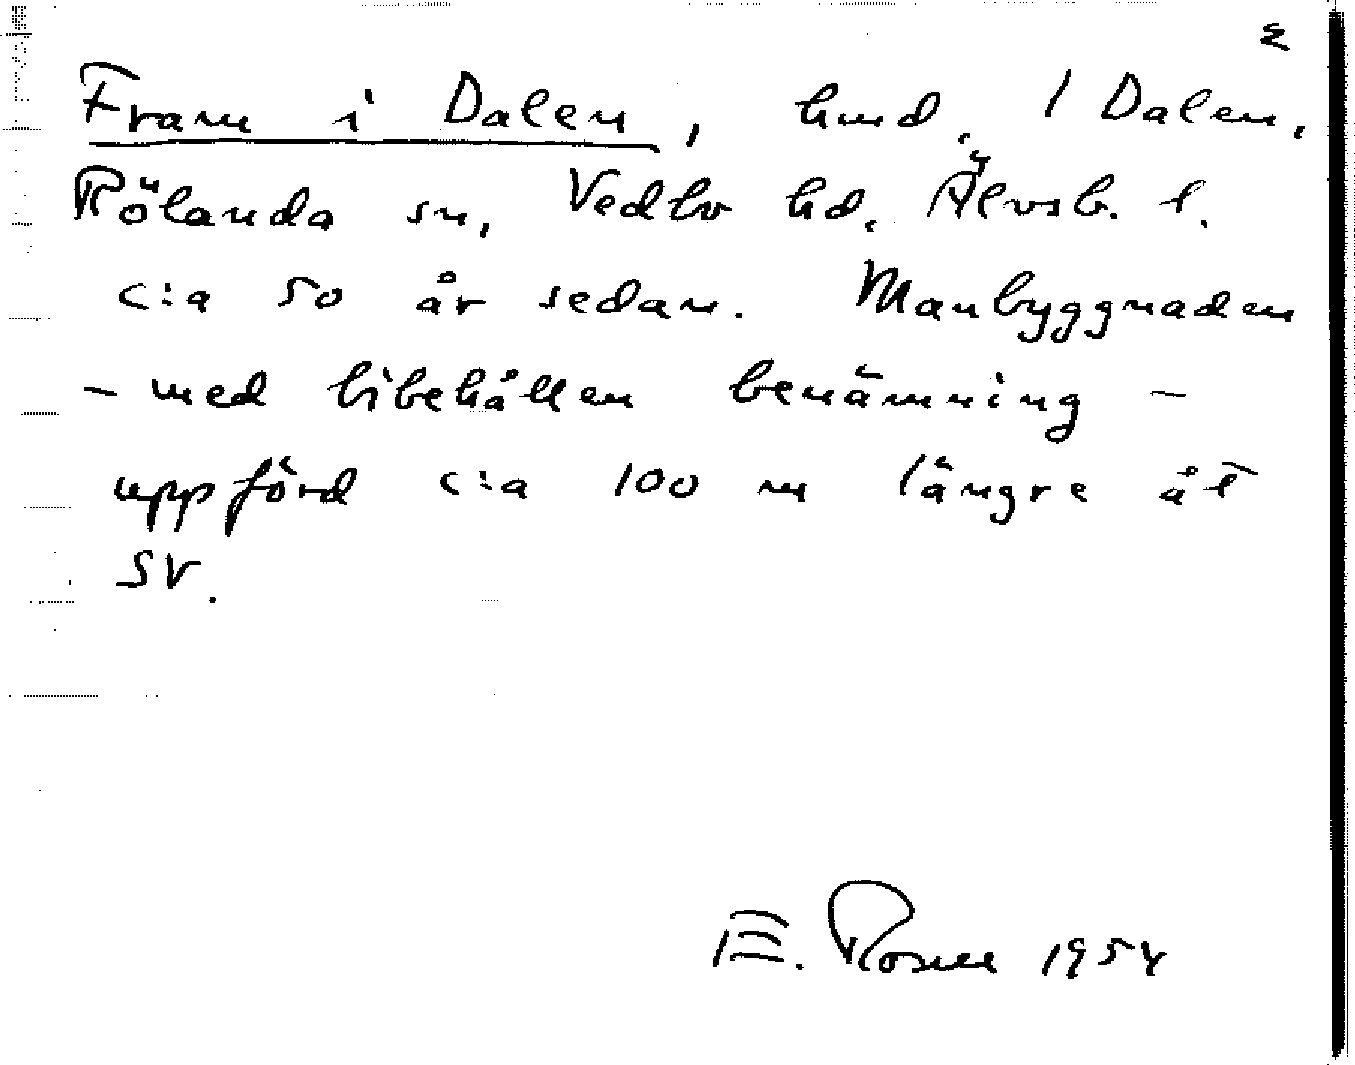 Fram i Dalen, hmd. 1 Dalen,
Rölanda sn, Vedbo hd, Älvsb. l.
c:a 50 år sedan. Manbyggnaden
– med bibehållen benämning –
uppförd c:a 100 m längre åt
SV.
E. Rosell 1954